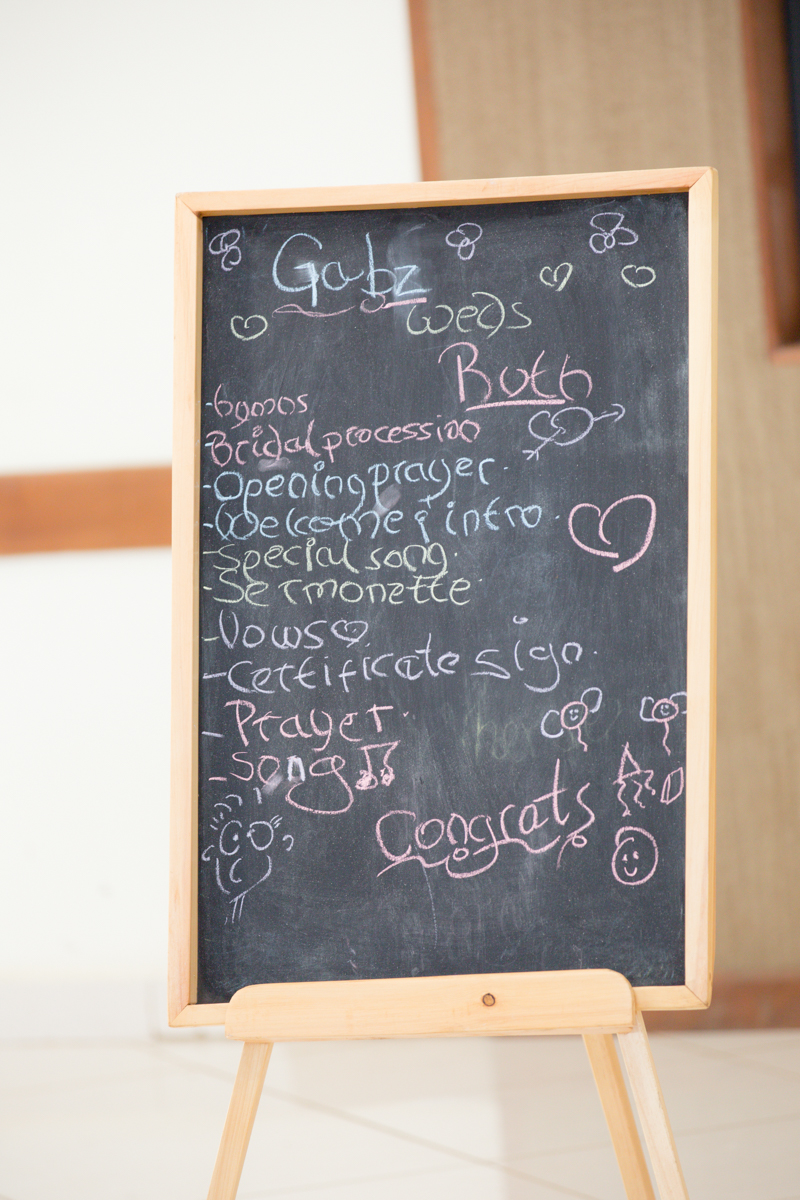 Gabz
weds
Ruth
-hymns
-Bridal procession
-Opening prayer.
-Welcome & intro.
-Special song.
-Sermonette.
-Vows
-Certificate sign.
-Prayer.
-song
Congrats